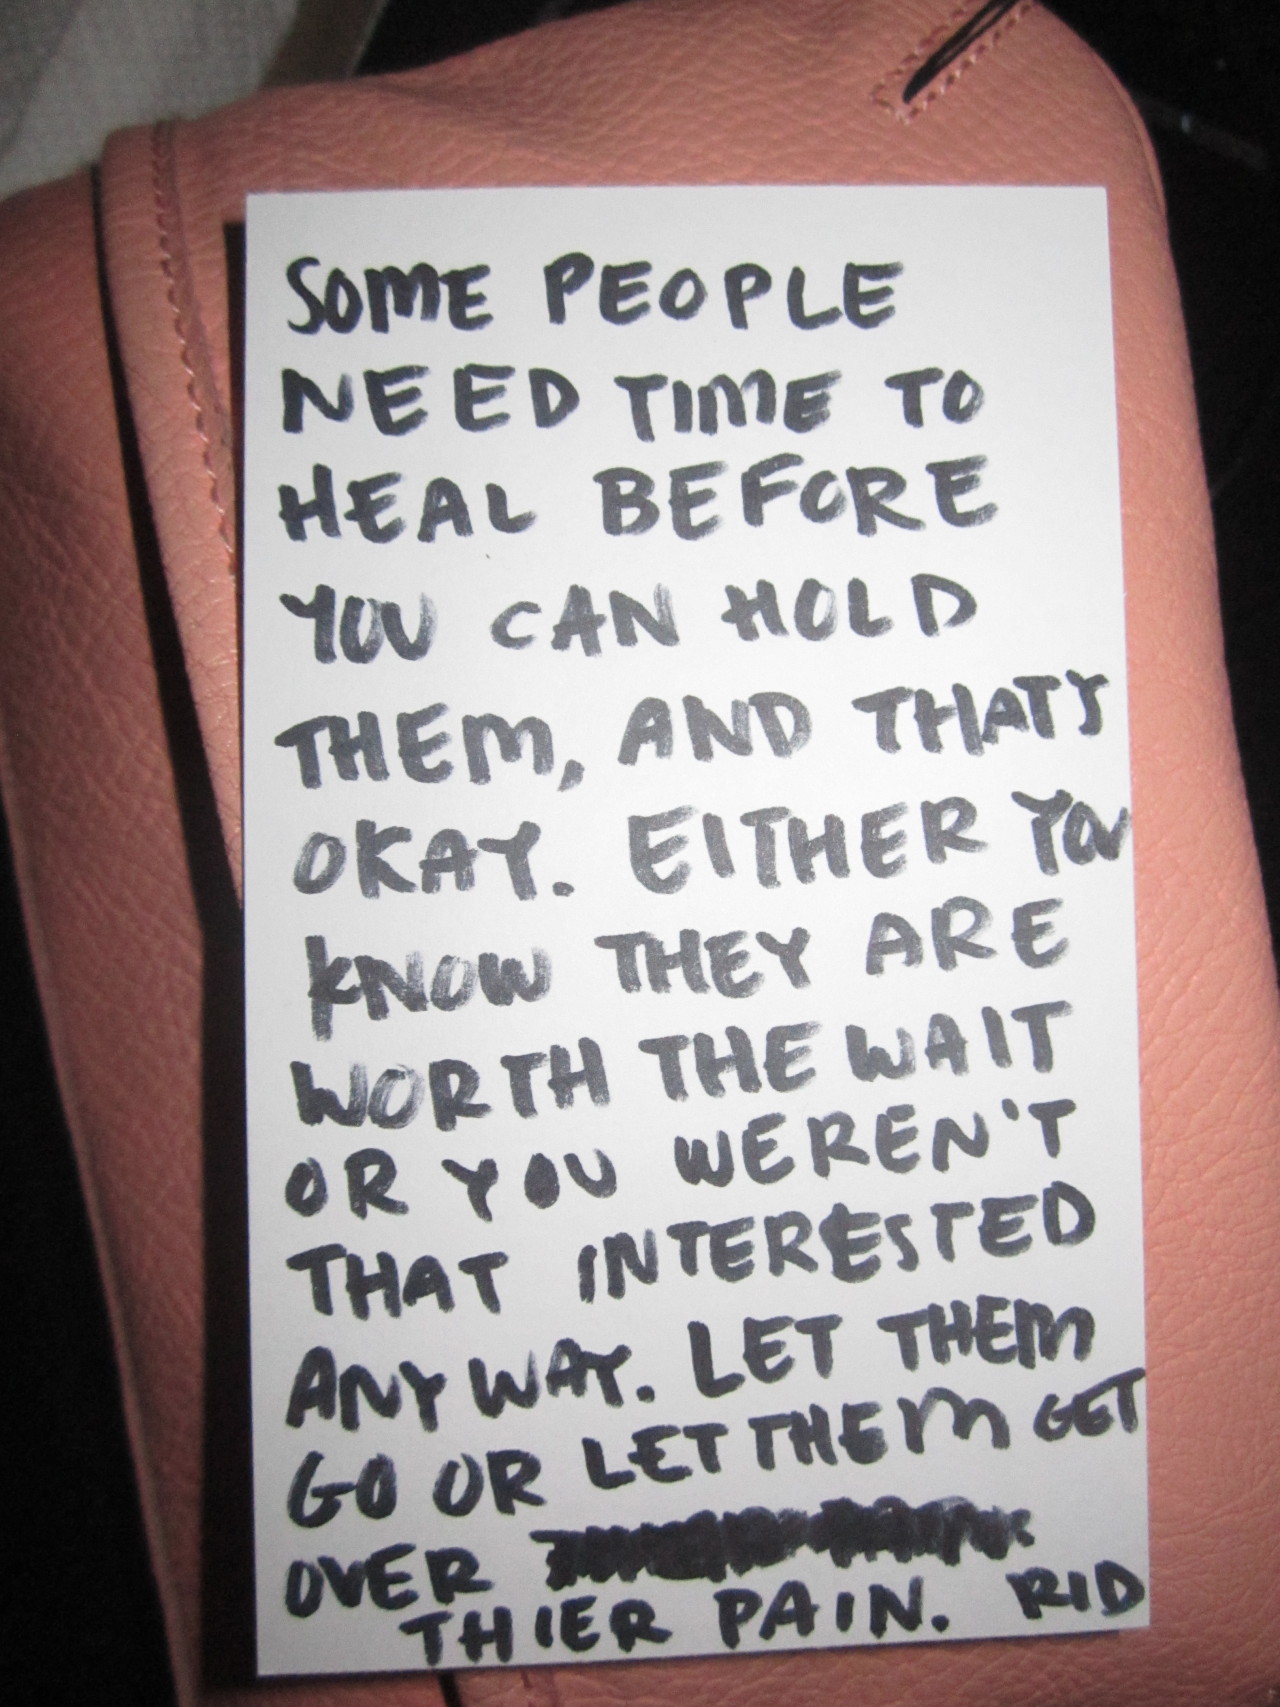 SOME PEOPLE
NEED TIME TO
HEAL BEFORE
YOU CAN HOLD
THEM, AND THAT'S
OKAY. EITHER YOU
KNOW THEY ARE
WORTH THE WAIT
OR YOU WEREN'T
THAT INTERESTED
ANYWAY. LET THEM
GO OR LET THEM GET
OVER
THIER PAIN. RID